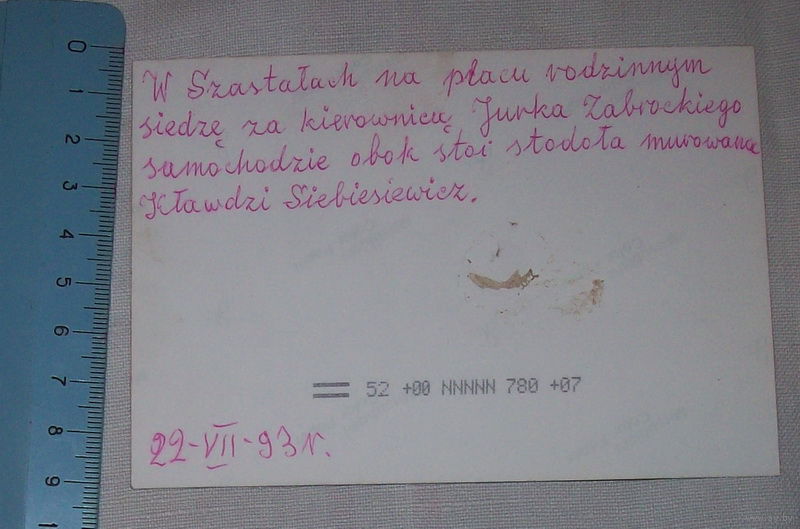 W Szastałach na placu rodzinnym
siedzę za kierownicą Jurka Zabrockiego
samochodzie obok stoi stodoła murowana
Kławdzi Siebiesiewicz.
== 52 +00 NNNNN 780 +07
22-VII-93 r.
0
1
2
3
4
5
6
7
8
9